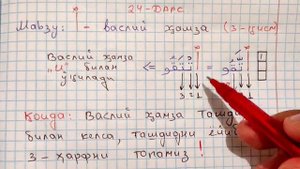 24-ДАРС
Мавзу: ٱ - васлий ҳамза (3-қисм)
Васлий ҳамза
"И" билан
ўқилади
<=
=
3 2 1
Қоида: Васлий ҳамза ташд
билан келса, ташдидни ёйи
3 - ҳарфни топамиз !